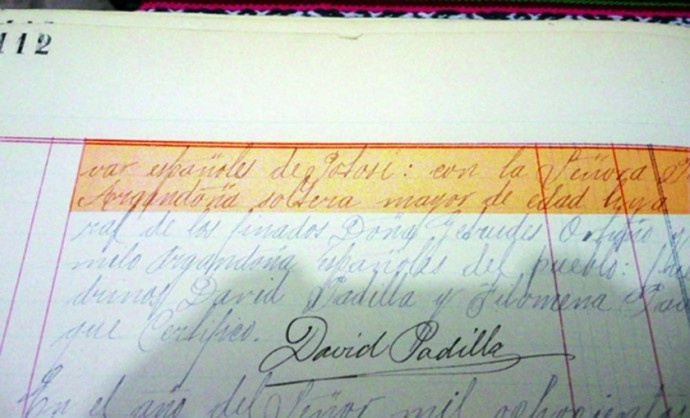 112
var españoles de Potosí: con la Señora
Argandoña soltera mayor de edad
de los finados Doña
milo Argandoña españoles del pueblo:
drinos David Padilla y Filomena
que Certifico.
David Padilla
En el año del Señor mil ochocientos